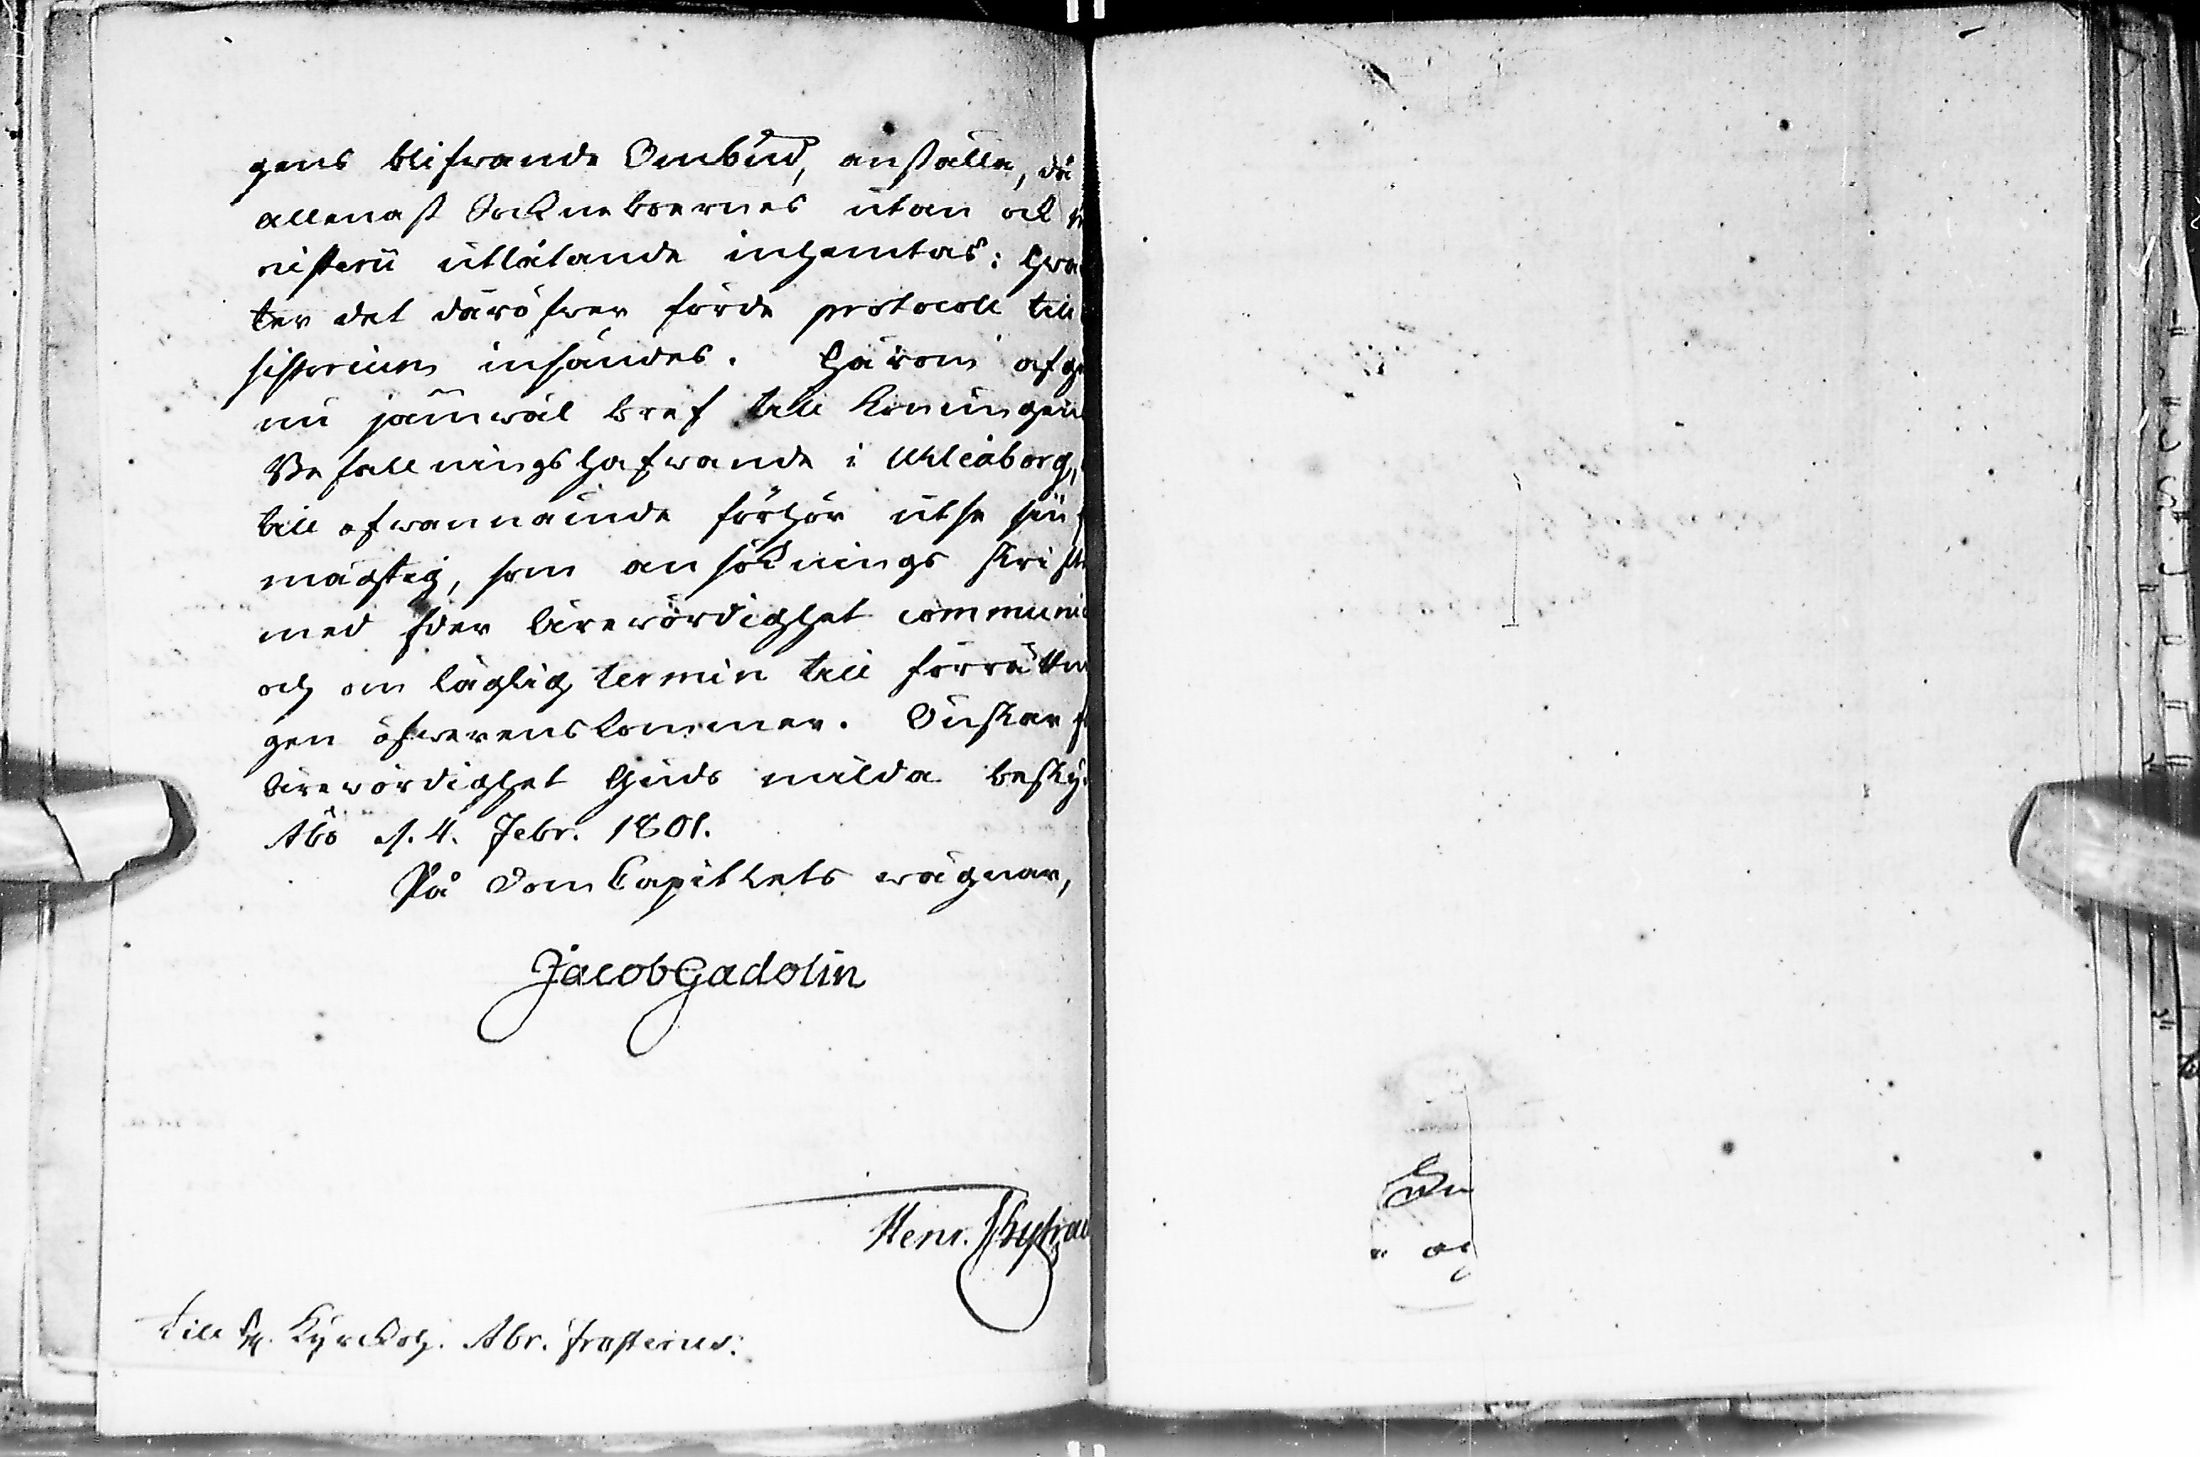 gens blifwande Ombud, anställa, då
allenast Sockneboernes utan ock
nisterii utlåtande inhemtas: hwa
ter det däröfwer förde protocoll till
sistorium insändes. Härom afg
nu jämwäl bref till Konungens
Befallningshafwande i Uhleåborg,
till ofwannämde förhör utse sin
mägtig, som ansöknings skrift
med Eder Ärewördighet communi
och om läglig termin till förrättn
gen öfwerenskommer. Önskar
Ärewördighet Guds milda besky
Åbo d. 4. Febr. 1801.
På DomCapitlets wägnar,
Jacob Gadolin
Henr.
Till Hr. Kyrckoh. Abr. Frosterus.